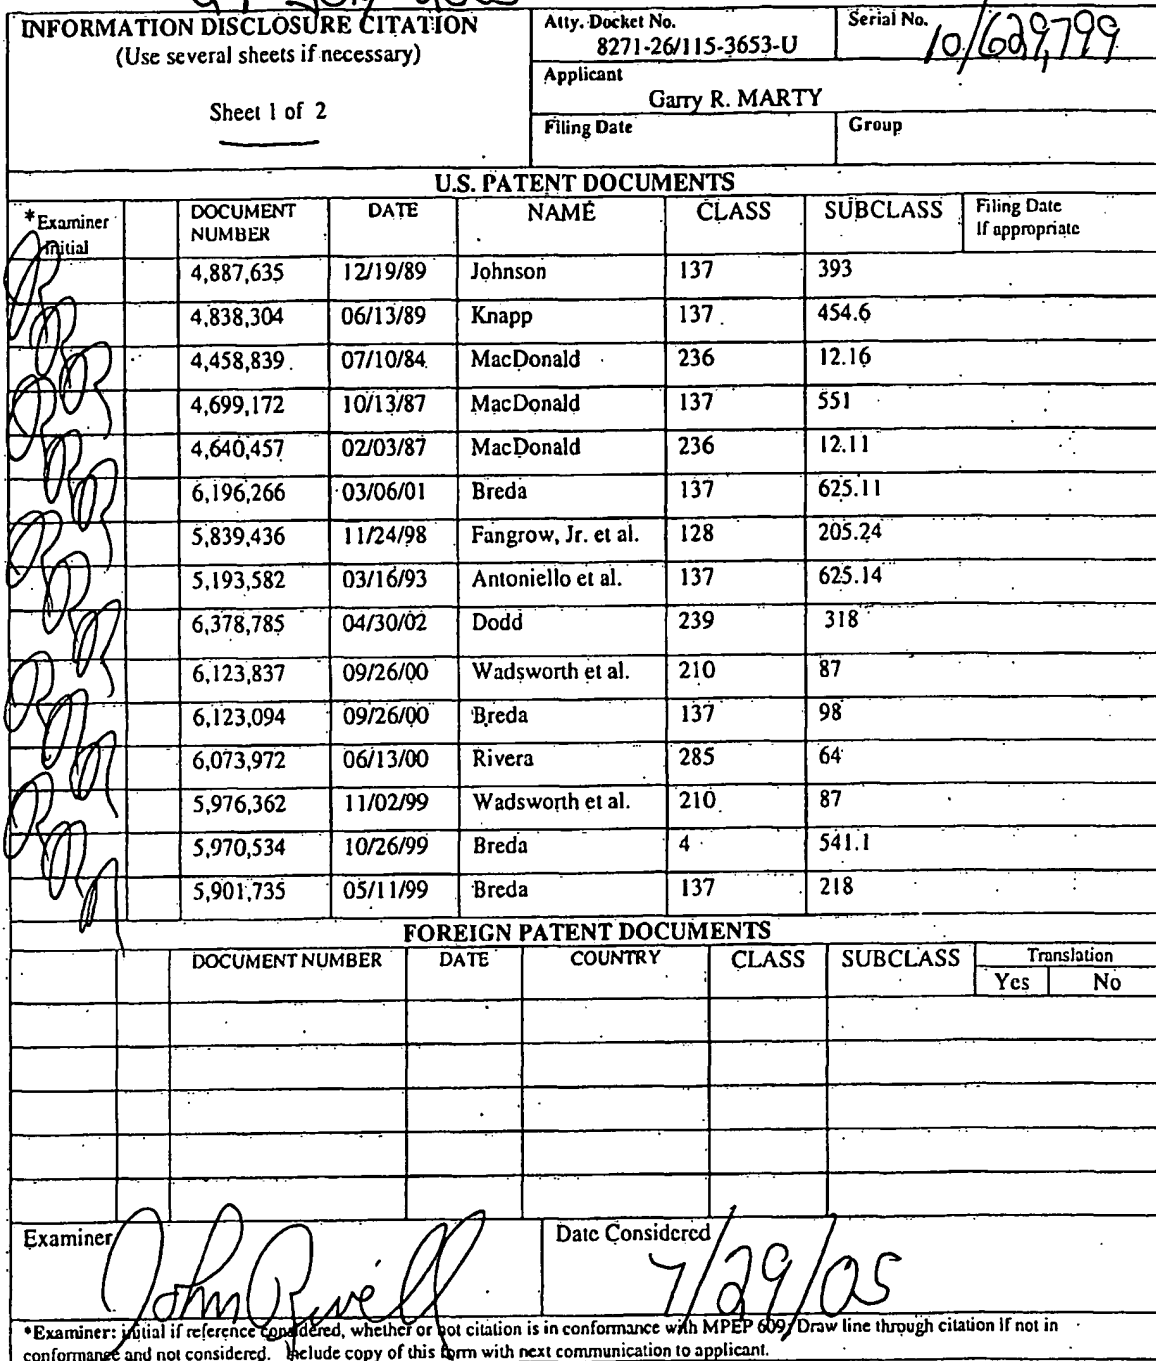 INFORMATION DISCLOSURE CITATION
(Use several sheets if necessary)
Sheet 1 of 2
Atty. Docket No.
8271-26/115-3653-U
Serial No.
10/629,799
Applicant
Garry R. MARTY
Filing Date
Group
U.S. PATENT DOCUMENTS
*Examiner Initial DOCUMENT NUMBER DATE NAME CLASS SUBCLASS Filing Date If appropriate
4,887,635 12/19/89 Johnson 137 393
4,838,304 06/13/89 Knapp 137 454.6
4,458,839 07/10/84 MacDonald 236 12.16
4,699,172 10/13/87 MacDonald 137 551
4,640,457 02/03/87 MacDonald 236 12.11
6,196,266 03/06/01 Breda 137 625.11
5,839,436 11/24/98 Fangrow, Jr. et al. 128 205.24
5,193,582 03/16/93 Antoniello et al. 137 625.14
6,378,785 04/30/02 Dodd 239 318
6,123,837 09/26/00 Wadsworth et al. 210 87
6,123,094 09/26/00 Breda 137 98
6,073,972 06/13/00 Rivera 285 64
5,976,362 11/02/99 Wadsworth et al. 210 87
5,970,534 10/26/99 Breda 4 541.1
5,901,735 05/11/99 Breda 137 218
FOREIGN PATENT DOCUMENTS
DOCUMENT NUMBER DATE COUNTRY CLASS SUBCLASS Translation
Yes No
Examiner John Rivell
Date Considered 7/29/05
*Examiner: initial if reference considered, whether or not citation is in conformance with MPEP 609; Draw line through citation if not in
conformance and not considered. Include copy of this form with next communication to applicant.